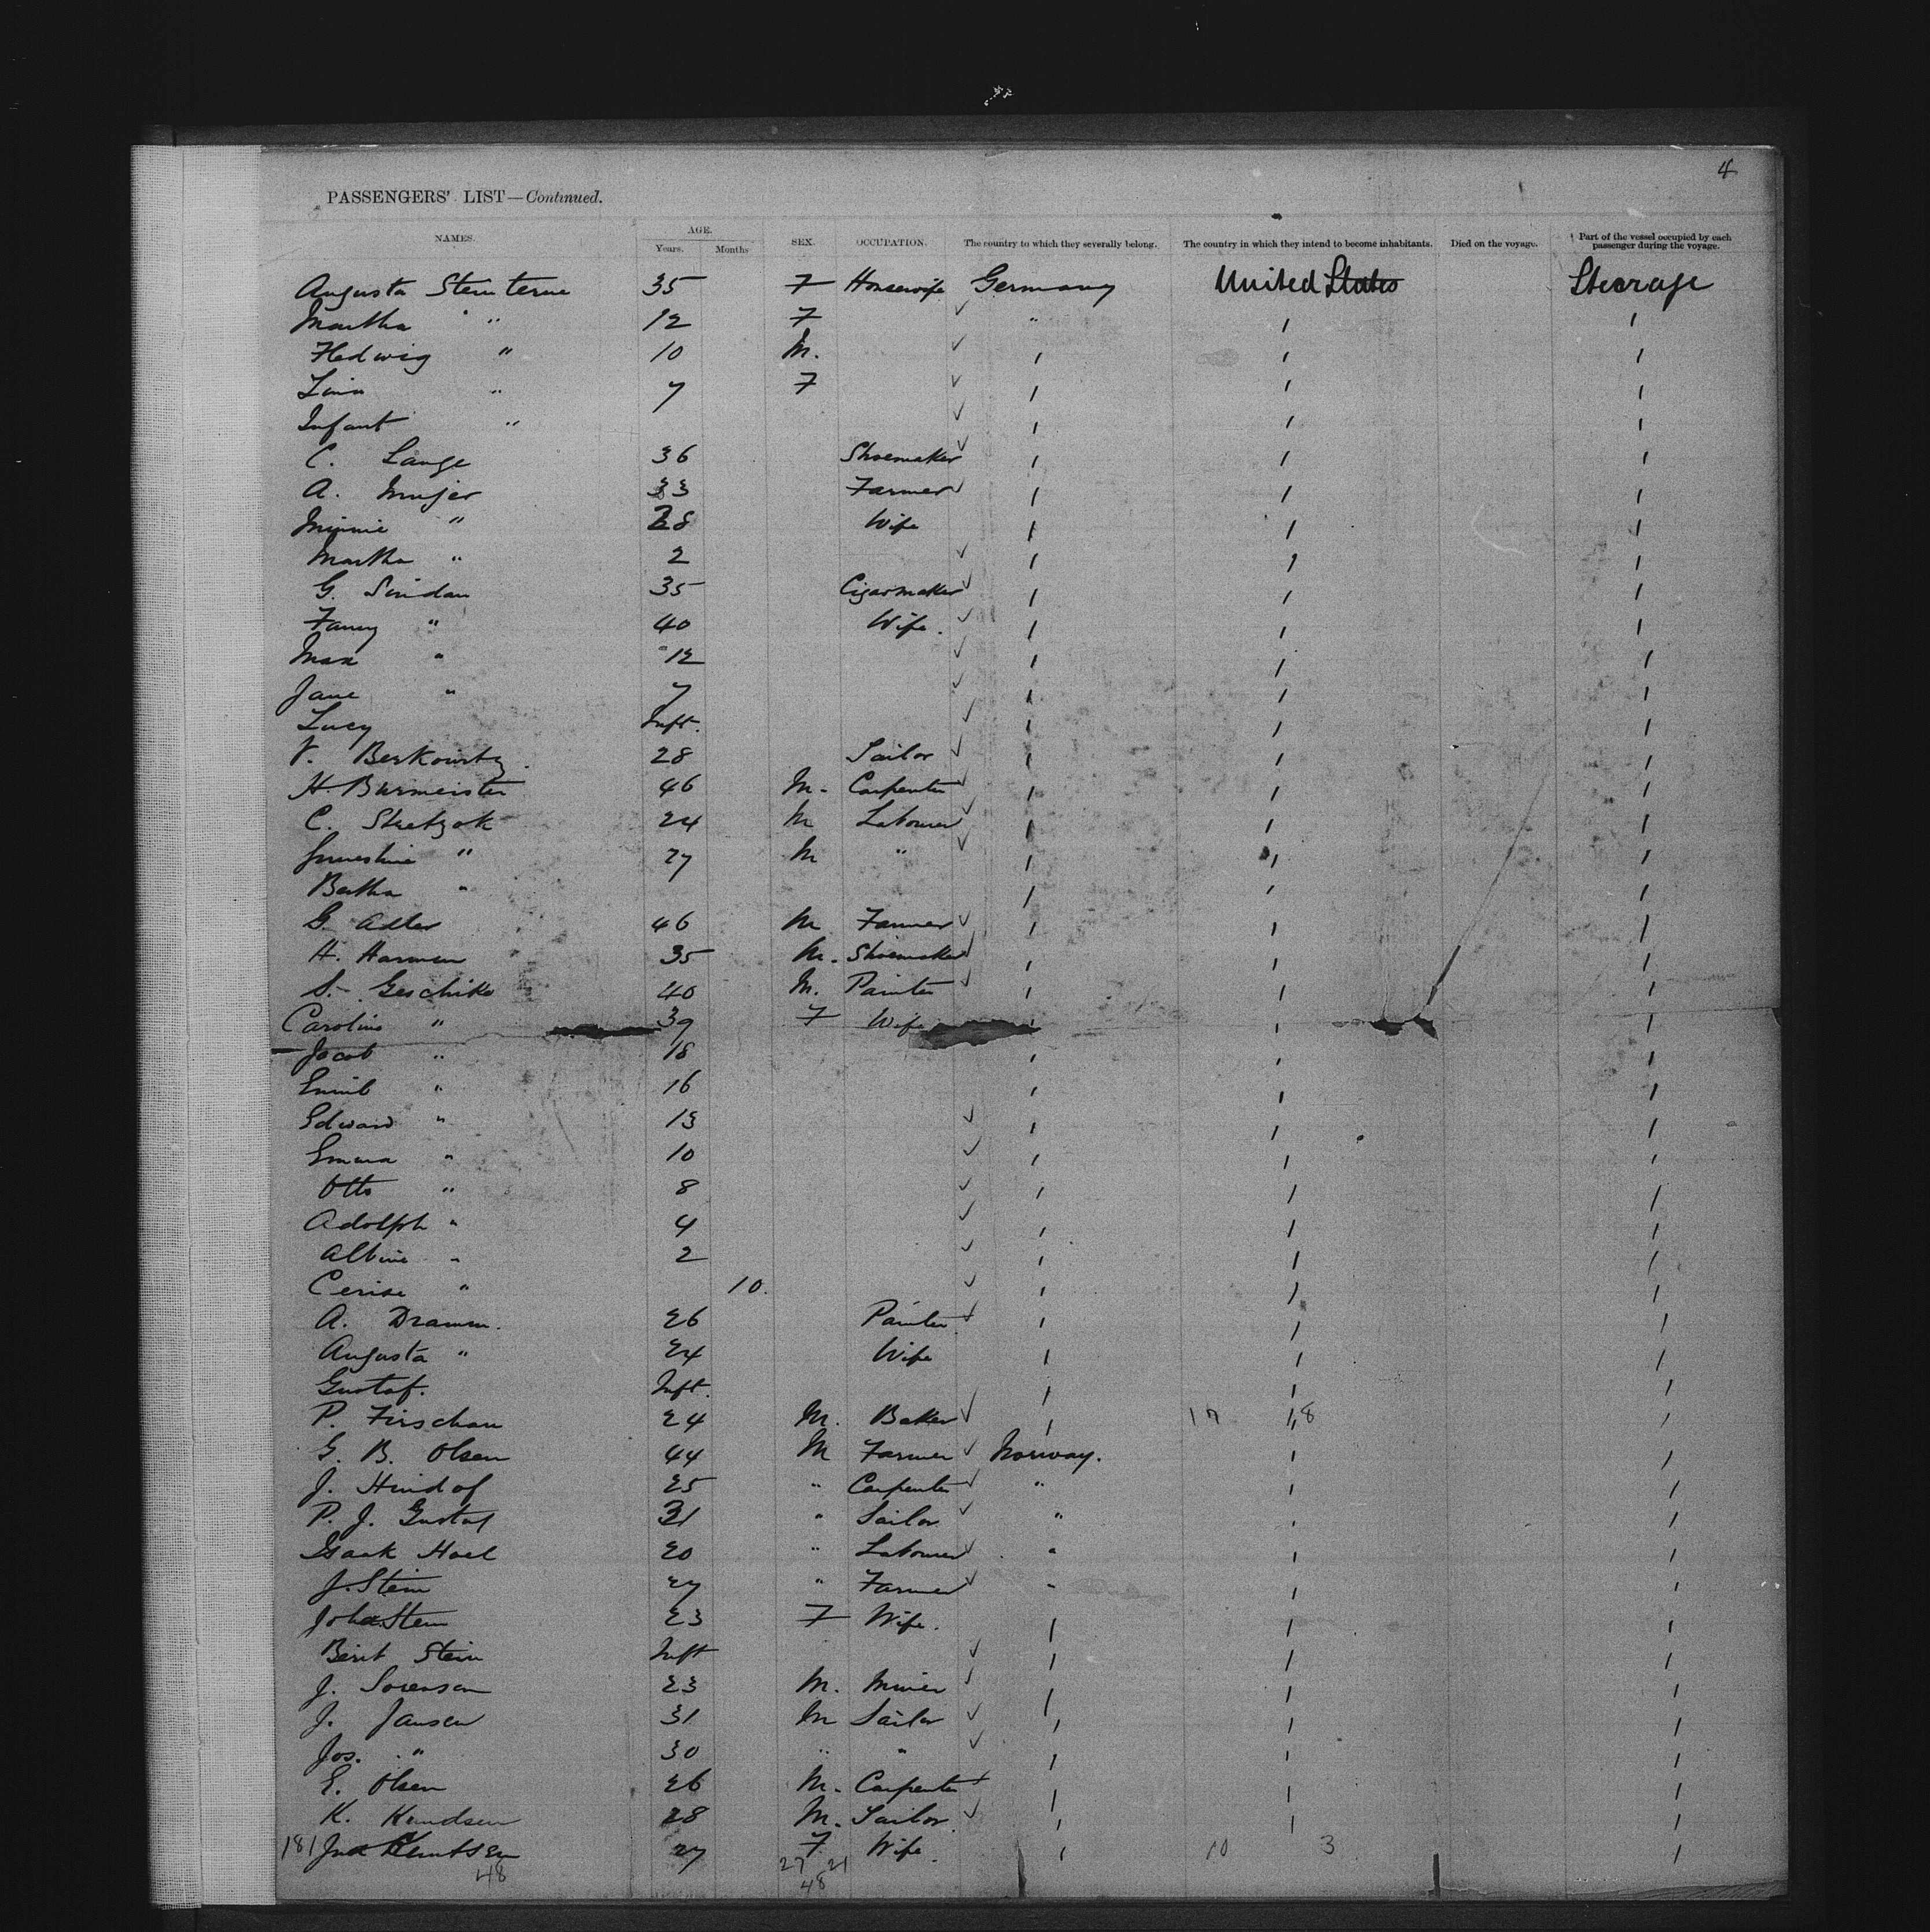 4
PASSENGERS' LIST—Continued.
NAMES. AGE. Years. Months SEX. OCCUPATION. The country to which they severally belong. The country in which they intend to become inhabitants. Died on the voyage. Part of the vessel occupied by each passenger during the voyage.
Augusta 35 F Housewife Germany United States Steerage
Martha " 12 F "
Hedwig " 10 M.
Lina " 7 F
Infant "
C. Lange 36 Shoemaker
A. 33 Farmer
Minnie " 28 Wife
Martha " 2
G. Sindau 35 Cigarmaker
Fanny " 40 Wife.
Max " 12
Jane " 7
Lucy Inft.
V. Berkowitz. 28 Sailor
H. Burmeister 46 M. Carpenter
C. 24 M Labourer
" 27 M "
Bertha "
G. Adler 46 M Farmer
H. Harmen 35 M. Shoemaker
S. Geschike 40 M. Painter
Caroline " 39 F Wife
Jacob " 18
Emil " 16
Edward " 13
Emma " 10
Otto " 8
Adolph " 4
Albine " 2
Cerise " 10.
A. Dramm. 26 Painter.
Augusta " 24 Wife
Gustaf. Inft.
P. Firschau 24 M. Baker 17 18
G. B. Olsen 44 M Farmer Norway.
J. Hindof 25 " Carpenter "
P. J. Gustaf 31 " Sailor "
Isaak Hoel 20 " Labourer "
J. Stein 27 " Farmer "
Joha Stein 23 F Wife.
Berit Stein Inft
J. Sorensen 23 M. Miner
J. Jansen 31 M Sailor
Jos. " 30 " "
E. Olsen 26 M. Carpenter
K. Knudsen 28 M. Sailor.
181 27 F Wife. 10 3
48 27 21
48